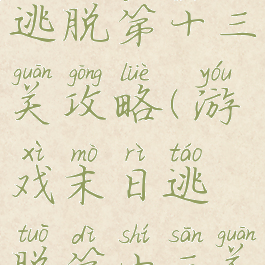 逃脱第十三
guān gōng lüè yóu
关攻略(游
xì mò rì táo
戏末日逃
tuō dì shí sān guān
脱第十三关